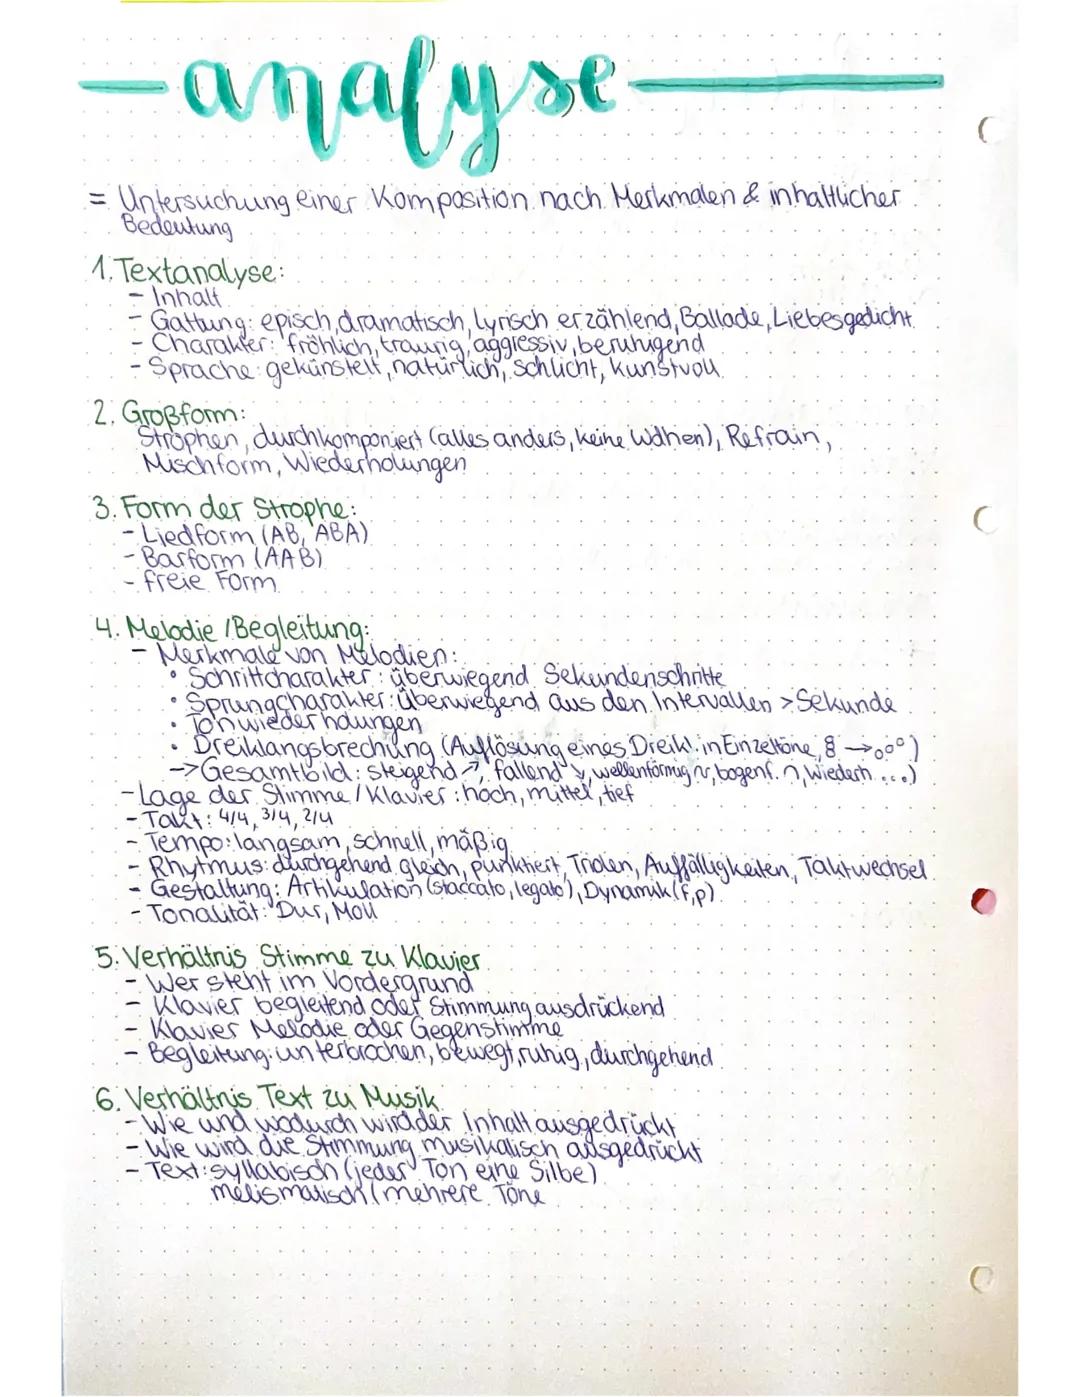 analyse
= Untersuchung einer Komposition nach Merkmalen & inhaltlicher
Bedeutung
1. Textanalyse:
- Inhalt
- Gattung: episch, dramatisch, lyrisch erzählend, Ballade, Liebesgedicht
- Charakter: fröhlich, traurig, aggressiv, beruhigend
- Sprache: gekünstelt, natürlich, schlicht, kunstvoll
2. Großform:
Strophen, durchkomponiert (alles anders, keine Wdhen), Refrain,
Mischform, Wiederholungen
3. Form der Strophe:
- Liedform (AB, ABA)
- Barform (AAB)
- freie Form
4. Melodie / Begleitung:
- Merkmale von Melodien:
• Schrittcharakter: überwiegend Sekundenschritte
• Sprungcharakter: überwiegend aus den Intervallen > Sekunde
• Tonwiederholungen
• Dreiklangsbrechung (Auflösung eines Dreikl. in Einzeltöne, → )
-> Gesamtbild: steigend ↗, fallend ↘, wellenförmig ~, bogenf. ∩, wiederh. ...)
- Lage der Stimme / Klavier: hoch, mittel, tief
- Takt: 4/4, 3/4, 2/4
- Tempo: langsam, schnell, mäßig
- Rhytmus: durchgehend gleich, punktiert, Triolen, Auffälligkeiten, Taktwechsel
- Gestaltung: Artikulation (staccato, legato), Dynamik (f, p)
- Tonalität: Dur, Moll
5. Verhältnis Stimme zu Klavier
- Wer steht im Vordergrund
- Klavier begleitend oder Stimmung ausdrückend
- Klavier Melodie oder Gegenstimme
- Begleitung: unterbrochen, bewegt, ruhig, durchgehend
6. Verhältnis Text zu Musik
- Wie und wodurch wird der Inhalt ausgedrückt
- Wie wird die Stimmung musikalisch ausgedrückt
- Text: syllabisch (jeder Ton eine Silbe)
melismatisch (mehrere Töne